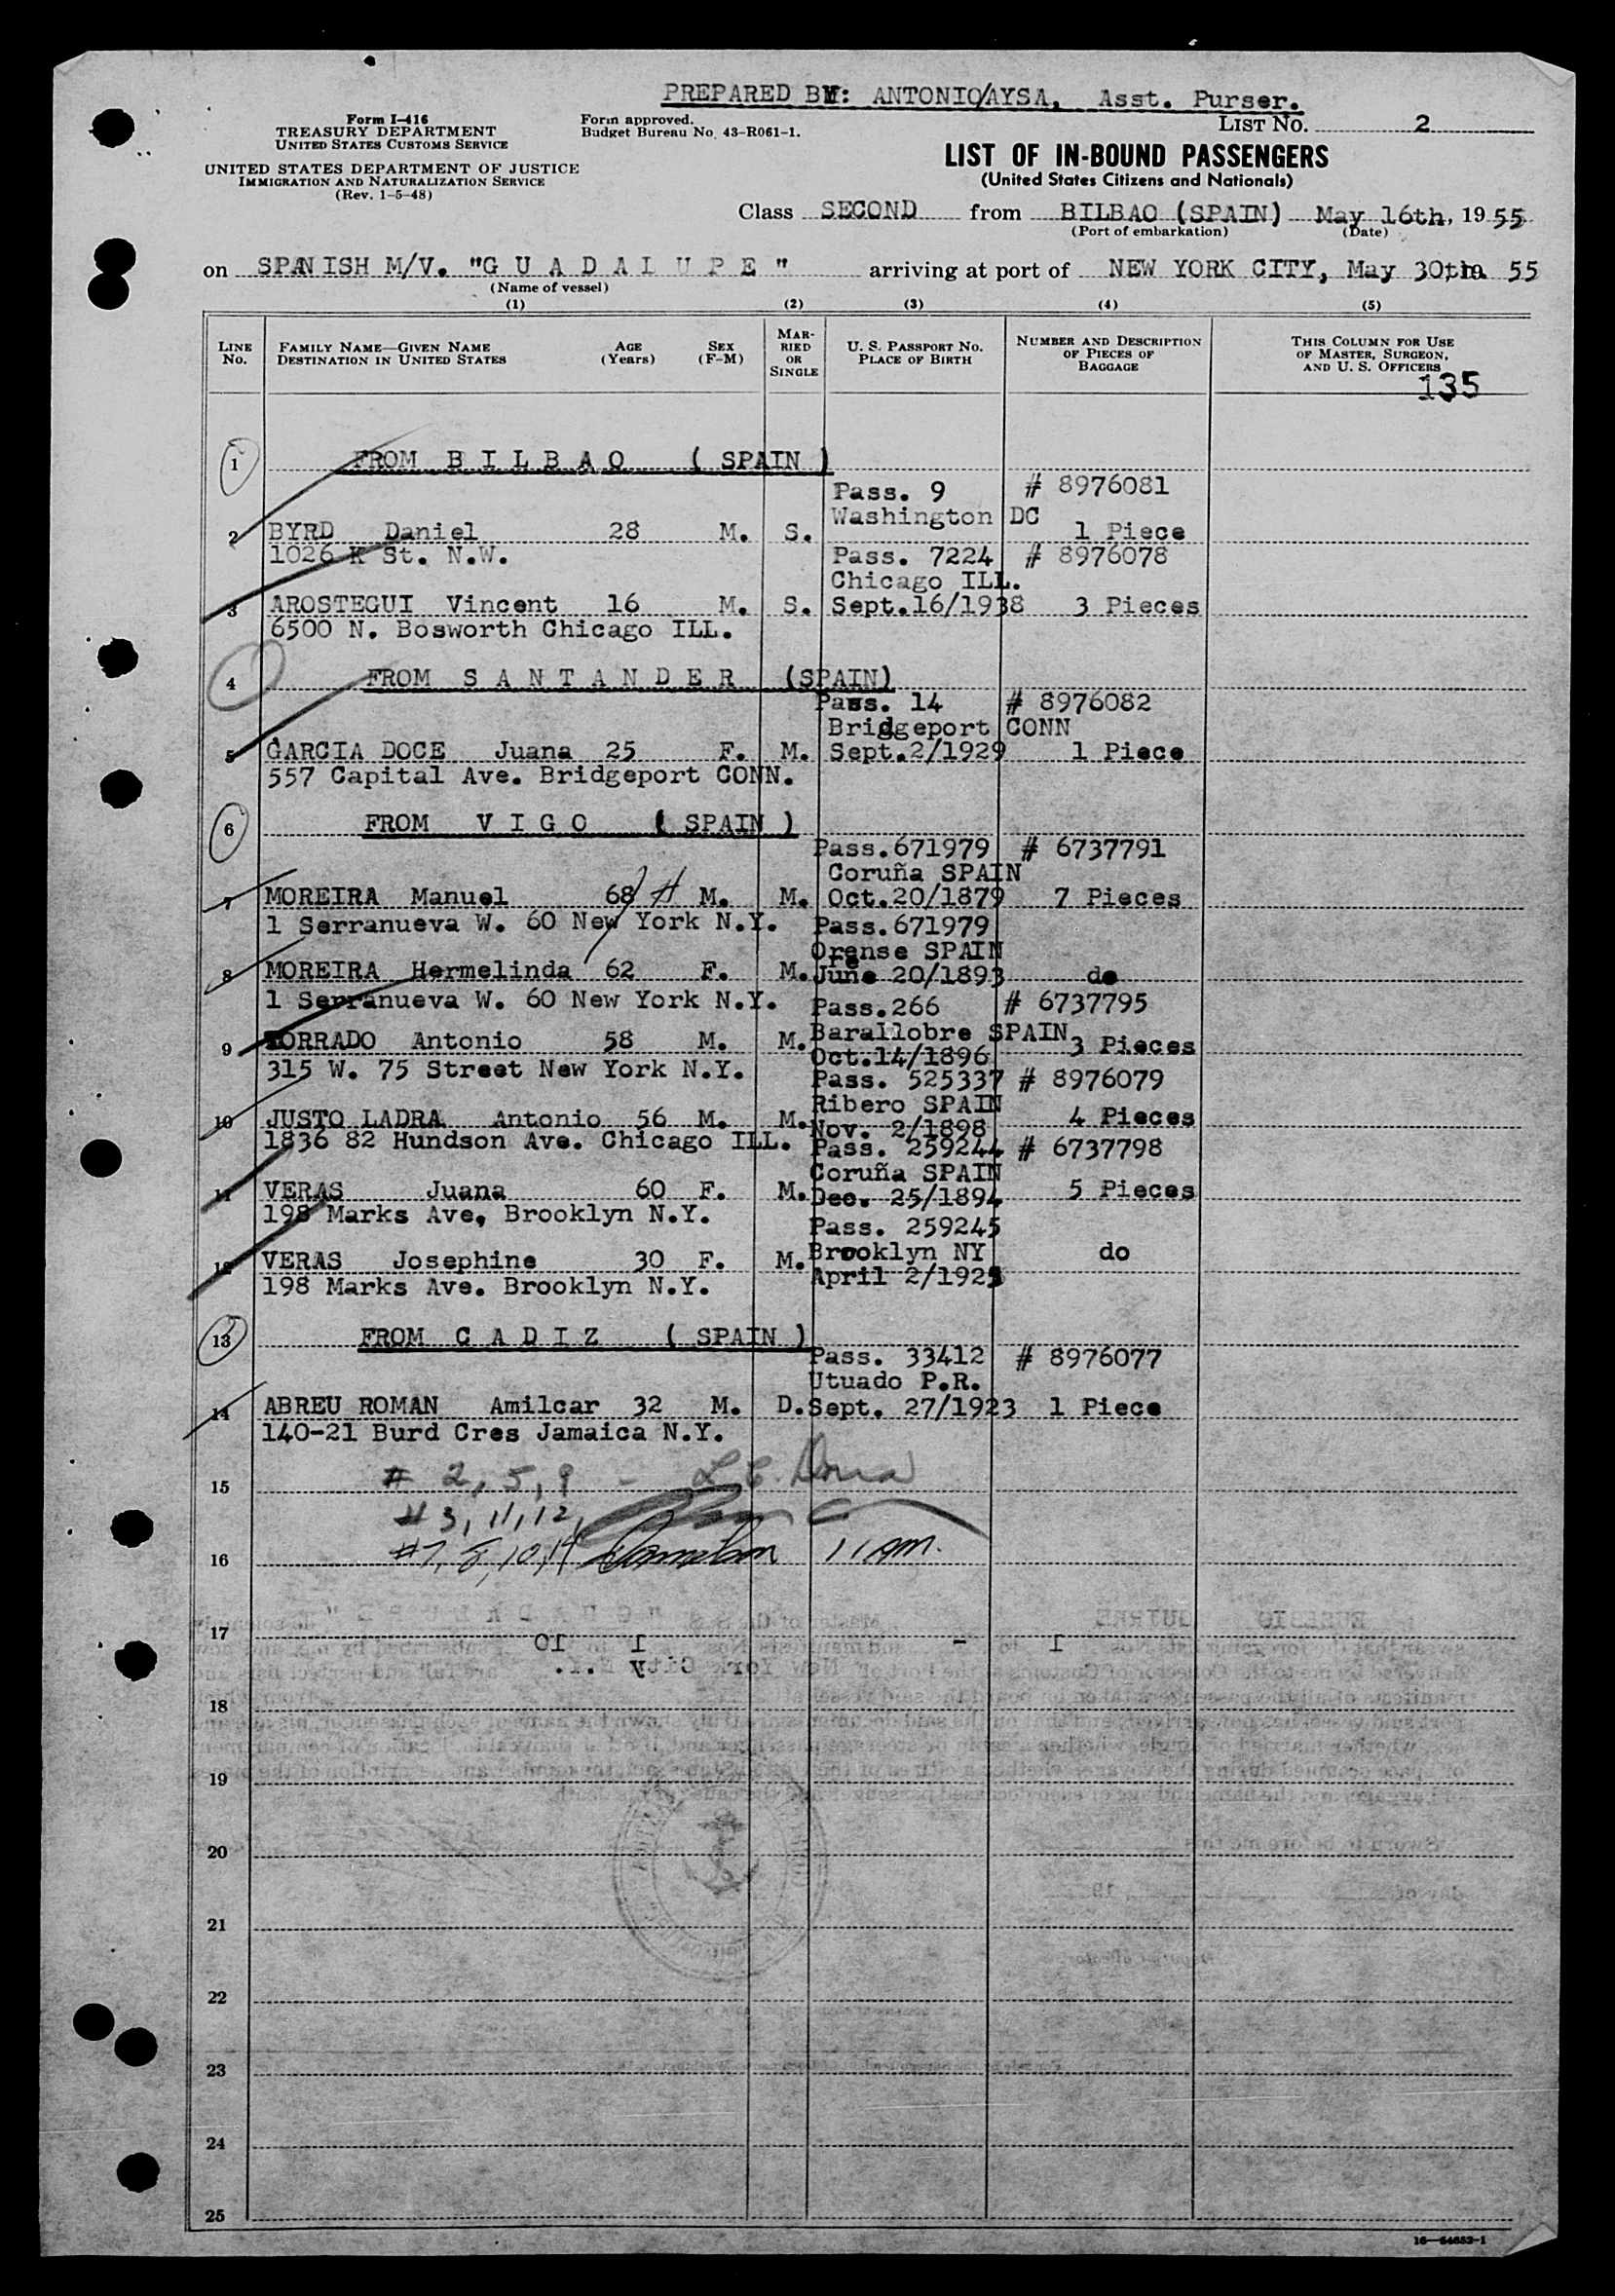 PREPARED BY: ANTONIO/AYSA, Asst. Purser.
Form I-416
TREASURY DEPARTMENT
UNITED STATES CUSTOMS SERVICE
Form approved.
Budget Bureau No. 43-R061-1.
LIST NO. 2
UNITED STATES DEPARTMENT OF JUSTICE
IMMIGRATION AND NATURALIZATION SERVICE
(Rev. 1-5-48)
LIST OF IN-BOUND PASSENGERS
(United States Citizens and Nationals)
Class SECOND from BILBAO (SPAIN) May 16th, 1955
(Port of embarkation) (Date)
on SPANISH M/V. "G U A D A L U P E" arriving at port of NEW YORK CITY, May 30th 55
(Name of vessel)
(1) (2) (3) (4) (5)
LINE No. FAMILY NAME—GIVEN NAME DESTINATION IN UNITED STATES AGE (Years) SEX (F-M) MARRIED OR SINGLE U. S. PASSPORT NO. PLACE OF BIRTH NUMBER AND DESCRIPTION OF PIECES OF BAGGAGE THIS COLUMN FOR USE OF MASTER, SURGEON, AND U. S. OFFICERS
135
1 FROM B I L B A O ( SPAIN )
Pass. 9 # 8976081
Washington DC
2 BYRD Daniel 28 M. S. 1 Piece
1026 K St. N.W. Pass. 7224 # 8976078
Chicago ILL.
3 AROSTEGUI Vincent 16 M. S. Sept.16/1938 3 Pieces
6500 N. Bosworth Chicago ILL.
4 FROM S A N T A N D E R (SPAIN)
Pass. 14 # 8976082
Bridgeport CONN
5 GARCIA DOCE Juana 25 F. M. Sept.2/1929 1 Piece
557 Capital Ave. Bridgeport CONN.
6 FROM V I G O ( SPAIN )
Pass.671979 # 6737791
Coruña SPAIN
7 MOREIRA Manuel 68 M. M. Oct.20/1879 7 Pieces
1 Serranueva W. 60 New York N.Y. Pass.671979
Orense SPAIN
8 MOREIRA Hermelinda 62 F. M. June 20/1893 do
1 Serranueva W. 60 New York N.Y. Pass.266 # 6737795
Barallobre SPAIN
9 TORRADO Antonio 58 M. M. Oct.14/1896 3 Pieces
315 W. 75 Street New York N.Y. Pass. 525337 # 8976079
Ribero SPAIN
10 JUSTO LADRA Antonio 56 M. M. Nov. 2/1898 4 Pieces
1836 82 Hundson Ave. Chicago ILL. Pass. 259244 # 6737798
Coruña SPAIN
11 VERAS Juana 60 F. M. Dec. 25/1894 5 Pieces
198 Marks Ave, Brooklyn N.Y. Pass. 259245
Brooklyn NY do
12 VERAS Josephine 30 F. M. April 2/1925
198 Marks Ave. Brooklyn N.Y.
13 FROM C A D I Z ( SPAIN )
Pass. 33412 # 8976077
Utuado P.R.
14 ABREU ROMAN Amilcar 32 M. D. Sept. 27/1923 1 Piece
140-21 Burd Cres Jamaica N.Y.
# 2, 5, 9 -
15
# 3, 11, 12,
#7, 8, 10, 14 11 AM.
16
17
18
19
20
21
22
23
24
25
16—54652-1